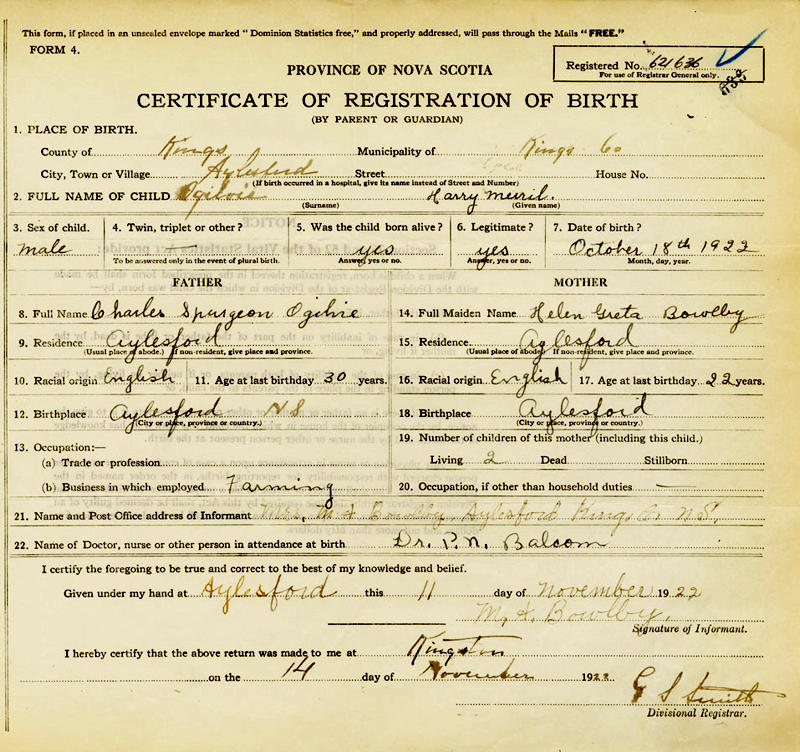 This form, if placed in an unsealed envelope marked "Dominion Statistics free," and properly addressed, will pass through the Mails "FREE."
FORM 4.
Registered No. 621636
For use of Registrar General only.
PROVINCE OF NOVA SCOTIA
CERTIFICATE OF REGISTRATION OF BIRTH
(BY PARENT OR GUARDIAN)
1. PLACE OF BIRTH.
County of Kings Municipality of Kings Co
City, Town or Village Aylesford Street House No.
(If birth occurred in a hospital, give its name instead of Street and Number)
2. FULL NAME OF CHILD Ogilvie Harry
(Surname) (Given name)
3. Sex of child. 4. Twin, triplet or other? 5. Was the child born alive? 6. Legitimate? 7. Date of birth?
male — yes yes October 18th 1922
To be answered only in the event of plural birth. Answer, yes or no. Answer, yes or no. Month, day, year.
FATHER MOTHER
8. Full Name Charles Spurgeon Ogilvie 14. Full Maiden Name Helen Greta Bowlby
9. Residence Aylesford 15. Residence Aylesford
(Usual place of abode.) If non-resident, give place and province. (Usual place of abode) If non-resident, give place and province.
10. Racial origin English 11. Age at last birthday 30 years. 16. Racial origin English 17. Age at last birthday 22 years.
12. Birthplace Aylesford N S 18. Birthplace Aylesford
(City or place, province or country.) (City or place, province or country.)
13. Occupation:— 19. Number of children of this mother (including this child.)
(a) Trade or profession Living 2 Dead Stillborn
(b) Business in which employed Farming 20. Occupation, if other than household duties —
21. Name and Post Office address of Informant Mrs. M A Bowlby Aylesford Kings Co N.S.
22. Name of Doctor, nurse or other person in attendance at birth Dr. P. N. Balcom
I certify the foregoing to be true and correct to the best of my knowledge and belief.
Given under my hand at Aylesford this 11 day of November 1922
M. A. Bowlby
Signature of Informant.
I hereby certify that the above return was made to me at Kingston
on the 14 day of November 1922
G S Smith
Divisional Registrar.